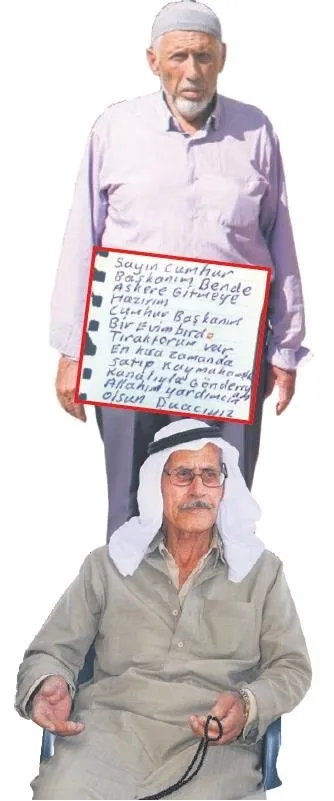 Sayın Cumhur
Başkanım Bende
Askere Gitmeye
Hazırım
Cumhur Başkanım
Bir Evim birde
Tıraktorum var
En kısa zamanda
satıp Kaymakamlık
kanalıyla Gönderiyom
Allahım yardımcın
olsun Duacınız